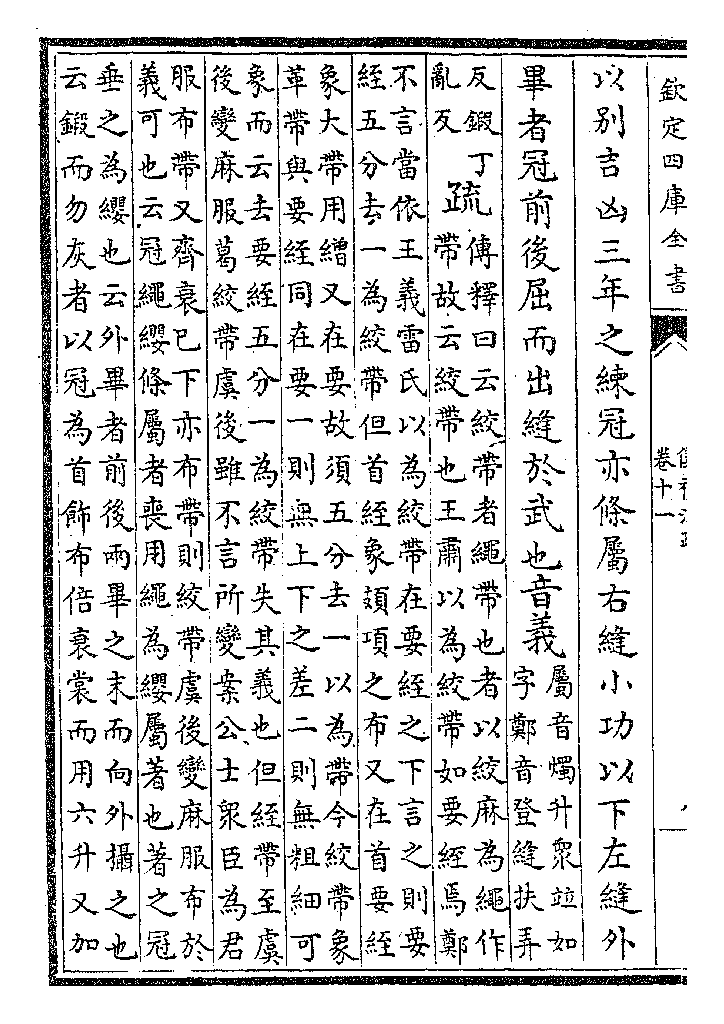 欽定四庫全書
卷十一
以别吉凶三年之練冠亦條屬右縫小功以下左縫外
畢者冠前後屈而出縫於武也音義
屬音燭升衆竝如
字鄭音登縫扶弄
反鍜丁
亂反
疏
傳釋曰云絞帶者繩帶也者以絞麻為繩作
帶故云絞帶也王肅以為絞帶如要絰焉鄭
不言當依王義雷氏以為絞帶在要絰之下言之則要
絰五分去一為絞帶但首絰象頍項之布又在首要絰
象大帶用繒又在要故須五分去一以為帶今絞帶象
革帶與要絰同在要一則無上下之差二則無粗細可
象而云去要絰五分一為絞帶失其義也但絰帶至虞
後變麻服葛絞帶虞後雖不言所變案公士衆臣為君
服布帶又齊衰已下亦布帶則絞帶虞後變麻服布於
義可也云冠繩纓條屬者喪用繩為纓屬著也著之冠
垂之為纓也云外畢者前後兩畢之末而向外攝之也
云鍛而勿灰者以冠為首飾布倍衰裳而用六升又加